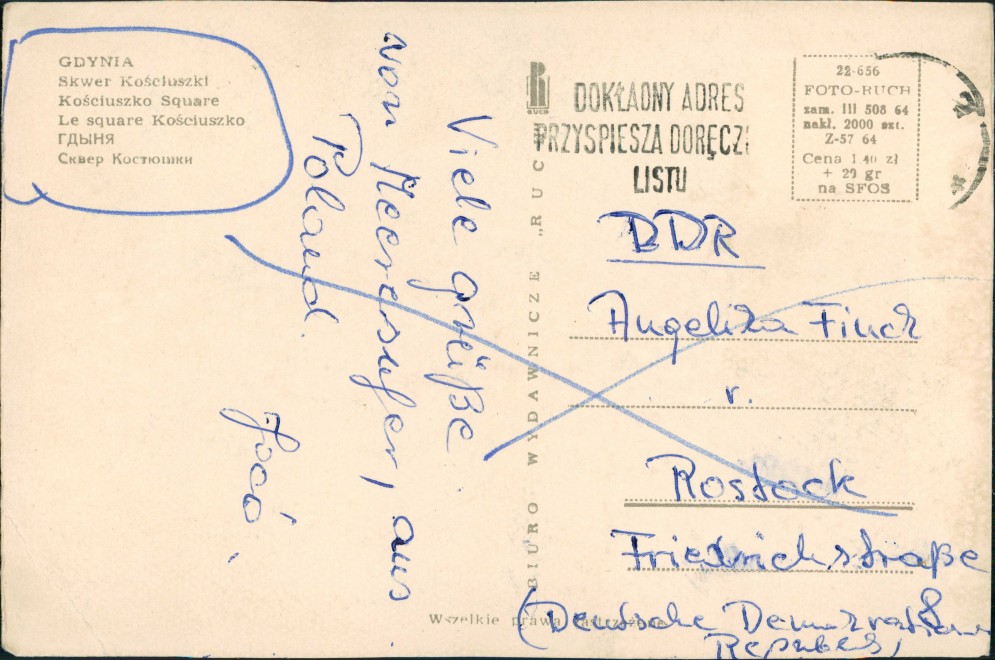 GDYNIA
Skwer Kościuszki
Kościuszko Square
Le square Kościuszko
ГДЫНЯ
Сквер Костюшки
Viele grüße
von Meeresufer, aus
Poland.
BIURO WYDAWNICZE „RUCH
RUCH
DOKŁADNY ADRES
PRZYSPIESZA DORĘCZ
LISTU
22-656
FOTO-RUCH
zam. III 508 64
nakł. 2000 szt.
Z-57 64
Cena 1 40 zł
+ 20 gr
na SFOS
DDR
Angelika Finck
r.
Rostock
Friedrichstraße
8
(Deutsche
Republik)
Wszelkie prawa zastrzeżone